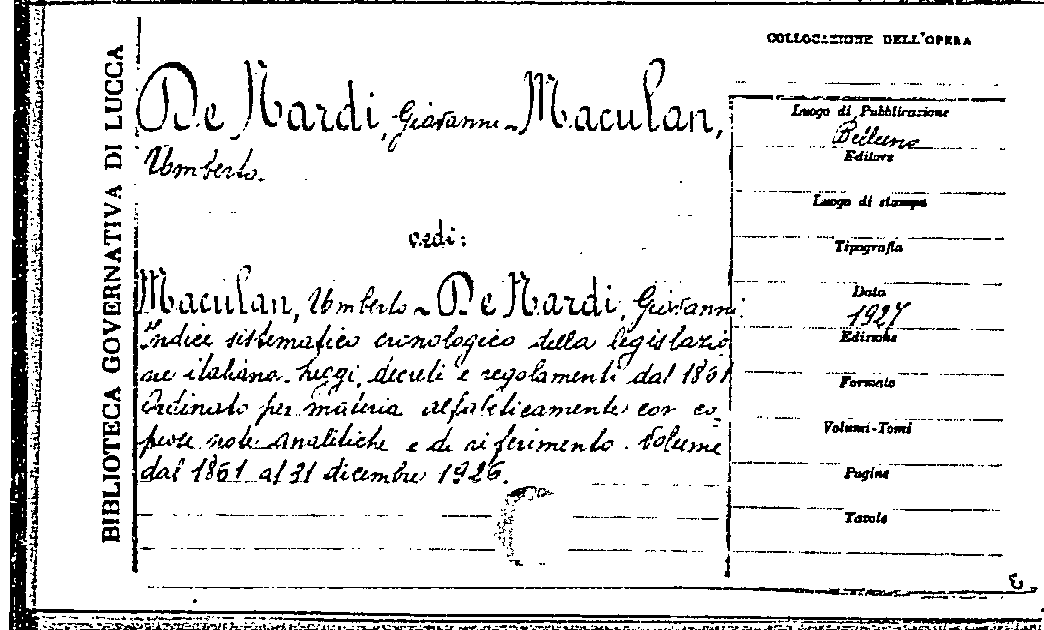 BIBLIOTECA GOVERNATIVA DI LUCCA
De Nardi, Giovanni - Maculan,
Umberto.
vedi:
Maculan, Umberto - De Nardi, Giovanni
Indice sistematico cronologico della legislazio
ne italiana. Leggi, decreti e regolamenti dal 1861
Ordinato per materia alfabeticamente con co_
piose note analitiche e di riferimento. Volume
dal 1861 al 31 dicembre 1926.
COLLOCAZIONE DELL'OPERA
Luogo di Pubblicazione
Belluno
Editore
Luogo di stampa
Tipografia
Data
1927
Edizione
Formato
Volumi-Tomi
Pagine
Tavole